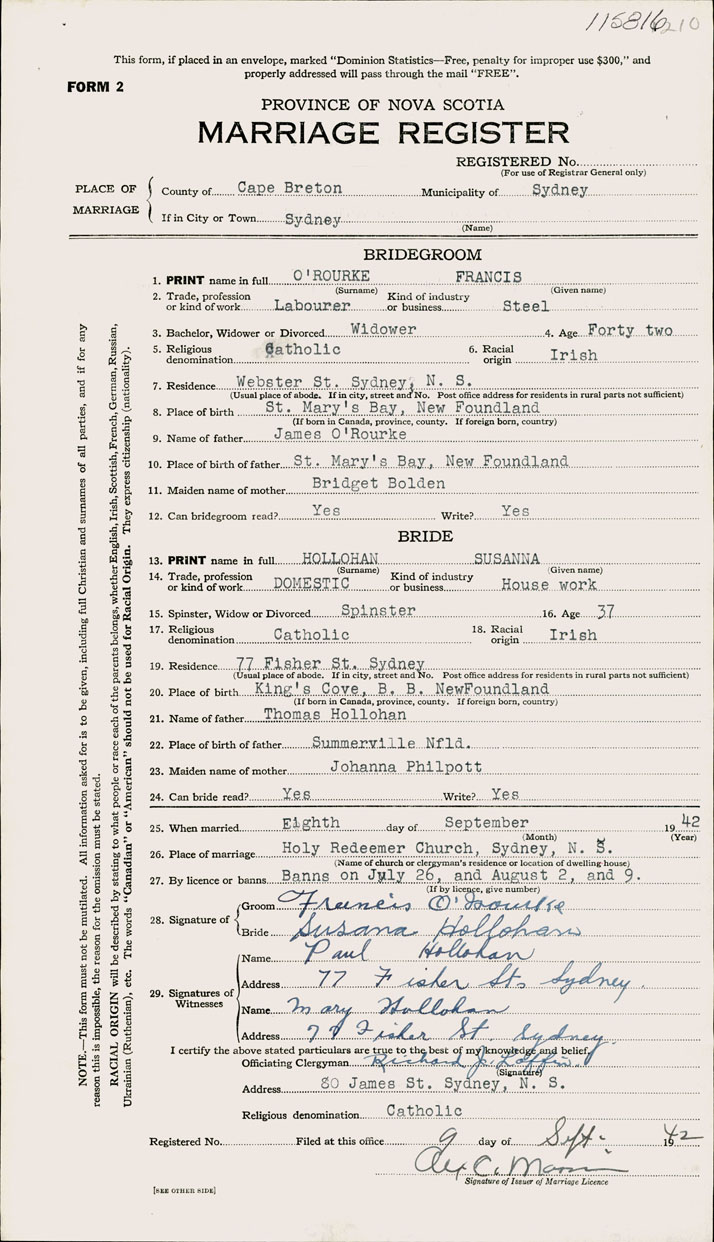 115816 210
This form, if placed in an envelope, marked "Dominion Statistics—Free, penalty for improper use $300," and
properly addressed will pass through the mail "FREE".
FORM 2
PROVINCE OF NOVA SCOTIA
MARRIAGE REGISTER
REGISTERED No.
(For use of Registrar General only)
PLACE OF MARRIAGE
County of Cape Breton Municipality of Sydney
If in City or Town Sydney
(Name)
BRIDEGROOM
1. PRINT name in full O'ROURKE FRANCIS
(Surname) (Given name)
2. Trade, profession or kind of work Labourer Kind of industry or business Steel
3. Bachelor, Widower or Divorced Widower 4. Age Forty two
5. Religious denomination Catholic 6. Racial origin Irish
7. Residence Webster St. Sydney, N. S.
(Usual place of abode. If in city, street and No. Post office address for residents in rural parts not sufficient)
8. Place of birth St. Mary's Bay, New Foundland
(If born in Canada, province, county. If foreign born, country)
9. Name of father James O'Rourke
10. Place of birth of father St. Mary's Bay, New Foundland
11. Maiden name of mother Bridget Bolden
12. Can bridegroom read? Yes Write? Yes
BRIDE
13. PRINT name in full HOLLOHAN SUSANNA
(Surname) (Given name)
14. Trade, profession or kind of work DOMESTIC Kind of industry or business House work
15. Spinster, Widow or Divorced Spinster 16. Age 37
17. Religious denomination Catholic 18. Racial origin Irish
19. Residence 77 Fisher St. Sydney
(Usual place of abode. If in city, street and No. Post office address for residents in rural parts not sufficient)
20. Place of birth King's Cove, B. B. NewFoundland
(If born in Canada, province, county. If foreign born, country)
21. Name of father Thomas Hollohan
22. Place of birth of father Summerville Nfld.
23. Maiden name of mother Johanna Philpott
24. Can bride read? Yes Write? Yes
25. When married Eighth day of September 19 42
(Month) (Year)
26. Place of marriage Holy Redeemer Church, Sydney, N. S.
(Name of church or clergyman's residence or location of dwelling house)
27. By licence or banns Banns on July 26, and August 2, and 9.
(If by licence, give number)
28. Signature of
Groom Francis O'Rourke
Bride Susana Hollohan
29. Signatures of Witnesses
Name Paul Hollohan
Address 77 Fisher St. Sydney.
Name Mary Hollohan
Address 77 Fisher St. Sydney.
I certify the above stated particulars are true to the best of my knowledge and belief,
Officiating Clergyman Richard J.
(Signature)
Address 80 James St. Sydney, N. S.
Religious denomination Catholic
Registered No. Filed at this office 9 day of Sept. 19 42
Alex C.
Signature of Issuer of Marriage Licence
[SEE OTHER SIDE]
NOTE.—This form must not be mutilated. All information asked for is to be given, including full Christian and surnames of all parties, and if for any
reason this is impossible, the reason for the omission must be stated.
RACIAL ORIGIN will be described by stating to what people or race each of the parents belongs, whether English, Irish, Scottish, French, German, Russian,
Ukrainian (Ruthenian), etc. The words "Canadian" or "American" should not be used for Racial Origin. They express citizenship (nationality).